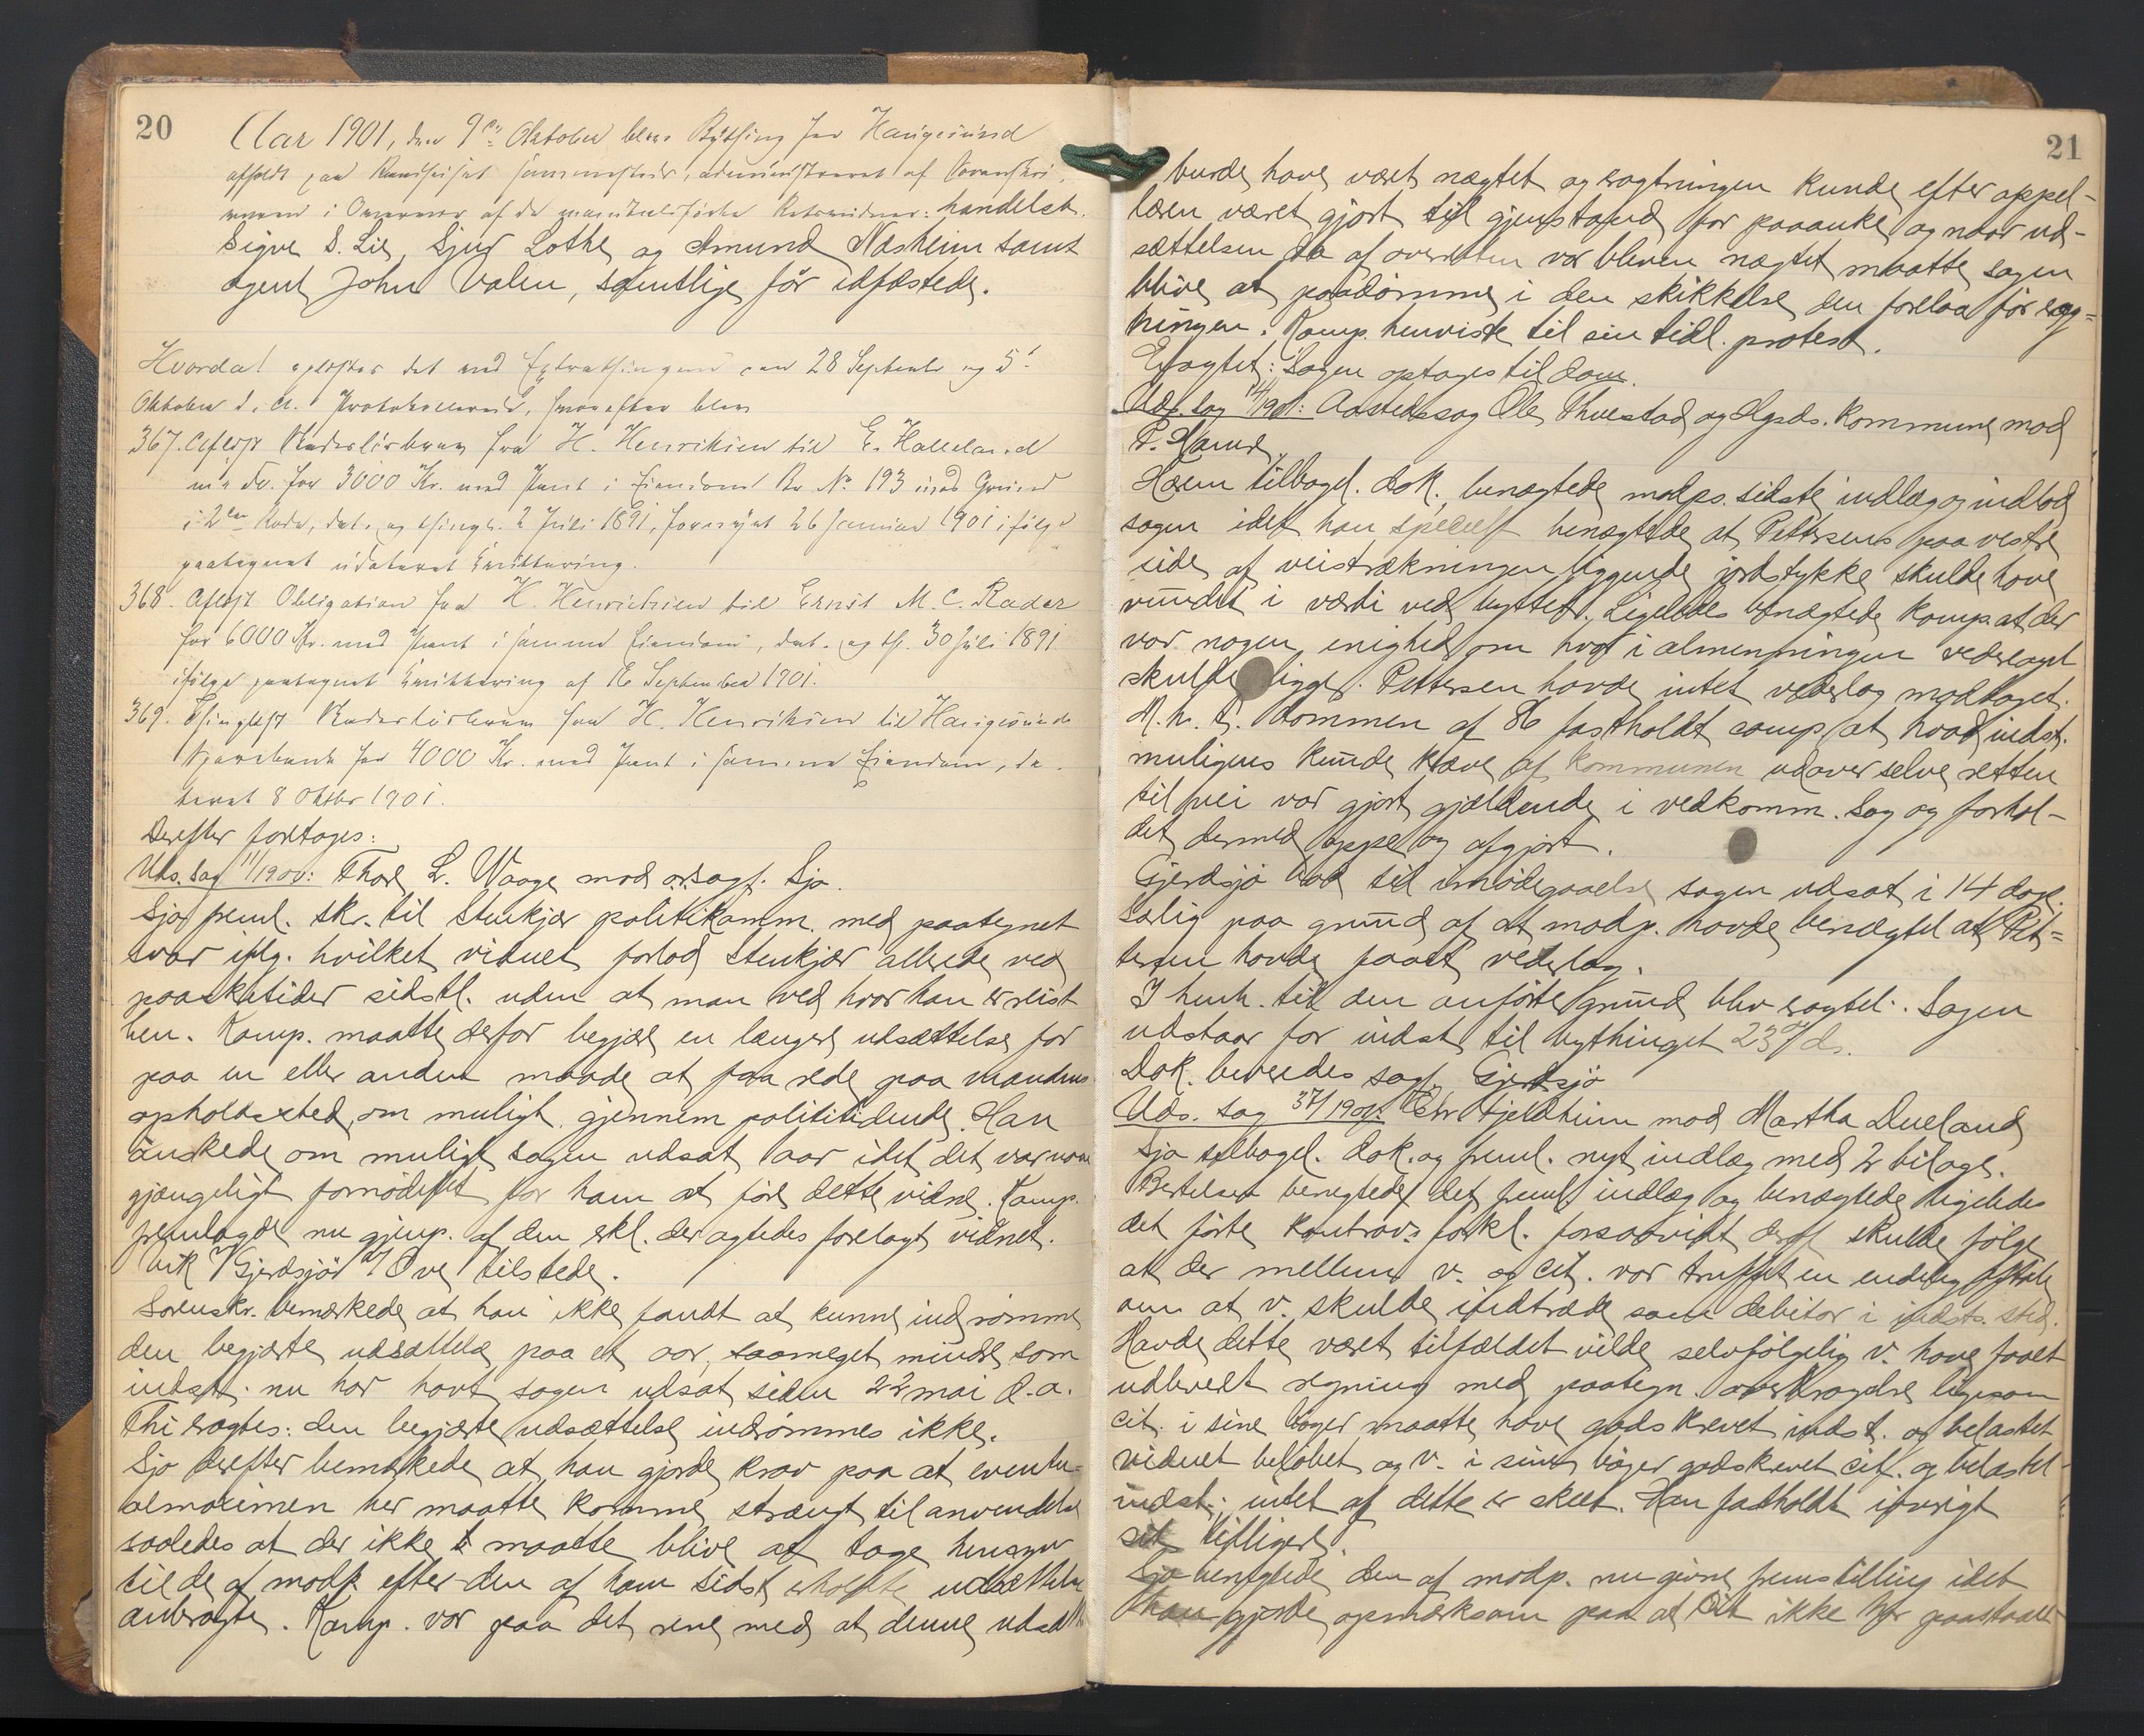 20
Aar 1901, den 9de Oktober blev Bything for Haugesund
afholdt paa Raadhuset sammesteds, administreret af Sorenskri-
veren i Overvær af de Retsvidner: handelsb.
Sigve S. Lie, Sjur Lothe og Amund Næsheim samt
agent John Valen, samtlige før edfæstede.
Hvorda! aflystes det ved Extrathingene den 28 Septembr og 5te
Oktober d. A. Protokollerede, hvorefter blev
367. Aflyst Kaderlirbrev fra H. Henriksen til E. Haueland
for 3000 Kr. med Pant i Eiendom Br No 193 med Grund
i 2den Rode, dat. og thingl. 2 Juli 1891, fornyet 26 Januar 1901 ifølge
paategnet udateret Kvittering.
368. Aflyst Obligation fra H. Henrichsen til Ernst M. C. Rader
for 6000 Kr. med Pant i samme Eiendom, dat. og th. 30 Juli 1891
ifølge paategnet Kvittering af 16 September 1901.
369. Thinglyst fra H. Henriksen til Haugesunds
Sparebank for 4000 Kr. med Pant i samme Eiendom, da-
teret 8 Oktbr 1901.
Derefter foretoges:
Uds. sag 11/1900: Thore L. Waage mod o.r.sagf. Sjo.
Sjo freml. skr. til Stenkjær politikamm. med paategnet
svar iflg. hvilket vidnet forlod Stenkjær allerede ved
paasketider sidstl. uden at man ved hvor han er reist
hen. Komp. maatte derfor begjære en længere udsættelse for
paa en eller anden maade at faa rede paa mandens
opholdssted, om muligt gjennem polititidende. Han
ønskede om muligt sagen udsat 1 aar idet det var uom-
gjængeligt fornødent for ham at føre dette vidne. Komp.
fremlagde nu gjenp. af den erkl. der agtedes forelagt vidnet.
Vik v/ Gjerdsjø v/ Ove tilstede.
Sorenskr. bemærkede at han ikke fandt at kunne indrømme
den begjærte udsættelse paa et aar, saameget mindre som
indst. nu har havt sagen udsat siden 22 mai d.a.
Thi eragtes: den begjærte udsættelse indrømmes ikke.
Sjo derefter bemærkede at han gjorde krav paa at eventu-
almaximen her maatte komme strængt til anvendelse
saaledes at der ikke maatte blive at tage hensyn
til de af modp. efter den af ham sidst erholdte udsættelse
anbragte. Komp. var paa det rene med at denne udsætt
21
burde have været nægtet og eragtningen kunde efter appel-
læren været gjort til gjenstand for paaanke og naar ud-
sættelsen da af overretten var bleven nægtet maatte sagen
blive at paadømme i den skikkelse den forelaa før erag-
ningen. Komp. henviste til sin tidl. protest.
Eragtet: Sagen optages til dom.
Uds. sag 14/1901: Aastedssag Ole Thuestad og Hgsds. Kommune mod
P.
Hærem tilbagel. dok., benægtede modps. sidste indlæg og indlod
sagen idet han specielt benægtede at Pettersens paa vestre
side af veistrækningen liggende jordstykke skulde have
vundet i værdi ved byttet. Ligeledes benægtede komp. at der
var nogen enighed om hvor i almenningen vederlaget
skulde ligge. Pettersen havde intet vederlag modtaget.
M.h.t. dommen af 86 fastholdt comp. at hvad indst.
muligens kunde kræve af kommunen udover selve retten
til vei var gjort gjældende i vedkomm. sag og forhol-
det dermed oppe og afgjort.
Gjerdsjø bad til imødegaaelse sagen udsat i 14 dage.
Særlig paa grund af at modp. havde benægtet at Pet-
tersen havde faaet vederlag.
I henh. til den anførte grund blev eragtet: Sagen
udstaar for indst. til bythinget 23 d/ds.
Dok. beroedes sagf. Gjerdsjø
Uds. sag 37/1901: Petr Fjeldheim mod Martha Dueland
Sjo tilbagel. dok. og freml. nyt indlæg med 2 bilage.
Bertelsen benegtede det freml. indlæg og benægtede ligeledes
det førte kontravs forkl. forsaavidt deraf skulde følge
at der mellem v. og cit. var truffet en endelig aftale
om at v. skulde indtræde som debitor i indsts. sted.
Havde dette været tilfældet vilde selvfølgelig v. have faaet
udleveret regning med paategn. overdragelse ligesom
cit. i sine bøger maatte have godskrevet indst. og belastet
vidnet beløbet og v. i sine bøger godskrevet cit. og belastet
indst.; intet af dette er skeet. Han fastholdt iøvrigt
sit tidligere.
Sjo benegtede den af modp. nu givne fremstilling idet
han gjorde opmærksom paa at Cit ikke har paastaaet